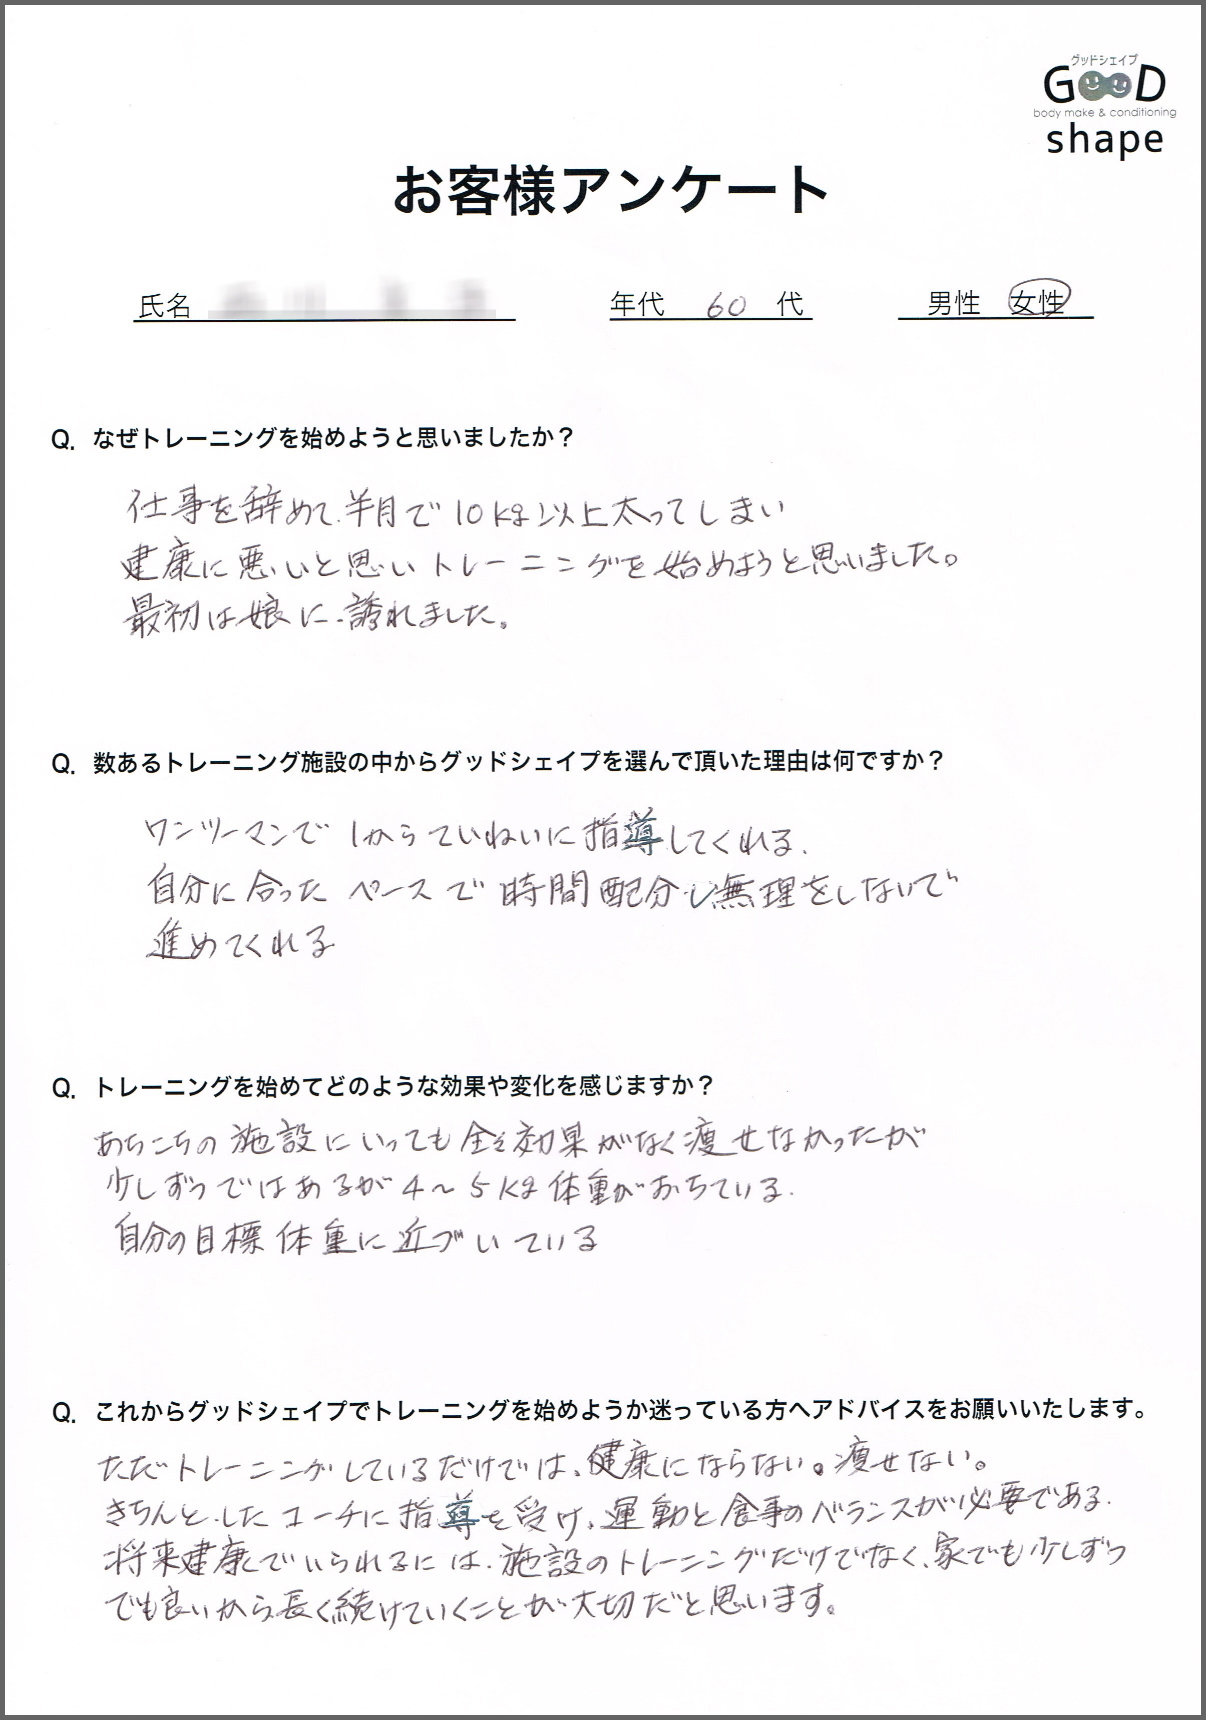 グッドシェイプ
GOOD
body make & conditioning
shape
お客様アンケート
氏名 年代 60 代 男性 女性
Q. なぜトレーニングを始めようと思いましたか？
仕事を辞めて、半月で10kg以上太ってしまい
健康に悪いと思いトレーニングを始めようと思いました。
最初は娘に、誘れました。
Q. 数あるトレーニング施設の中からグッドシェイプを選んで頂いた理由は何ですか？
ワンツーマンで1からていねいに指導してくれる。
自分に合ったペースで時間配分し無理をしないで
進めてくれる
Q. トレーニングを始めてどのような効果や変化を感じますか？
あちこちの施設にいっても全く効果がなく痩せなかったが
少しずつではあるが4～5kg体重がおちている。
自分の目標体重に近づいている
Q. これからグッドシェイプでトレーニングを始めようか迷っている方へアドバイスをお願いいたします。
ただトレーニングしているだけでは、健康にならない。痩せない。
きちんとしたコーチに指導を受け、運動と食事のバランスが必要である。
将来健康でいられるには、施設のトレーニングだけでなく、家でも少しずつ
でも良いから長く続けていくことが大切だと思います。